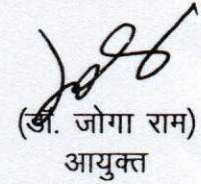 (डॉ. जोगा राम)
आयुक्त